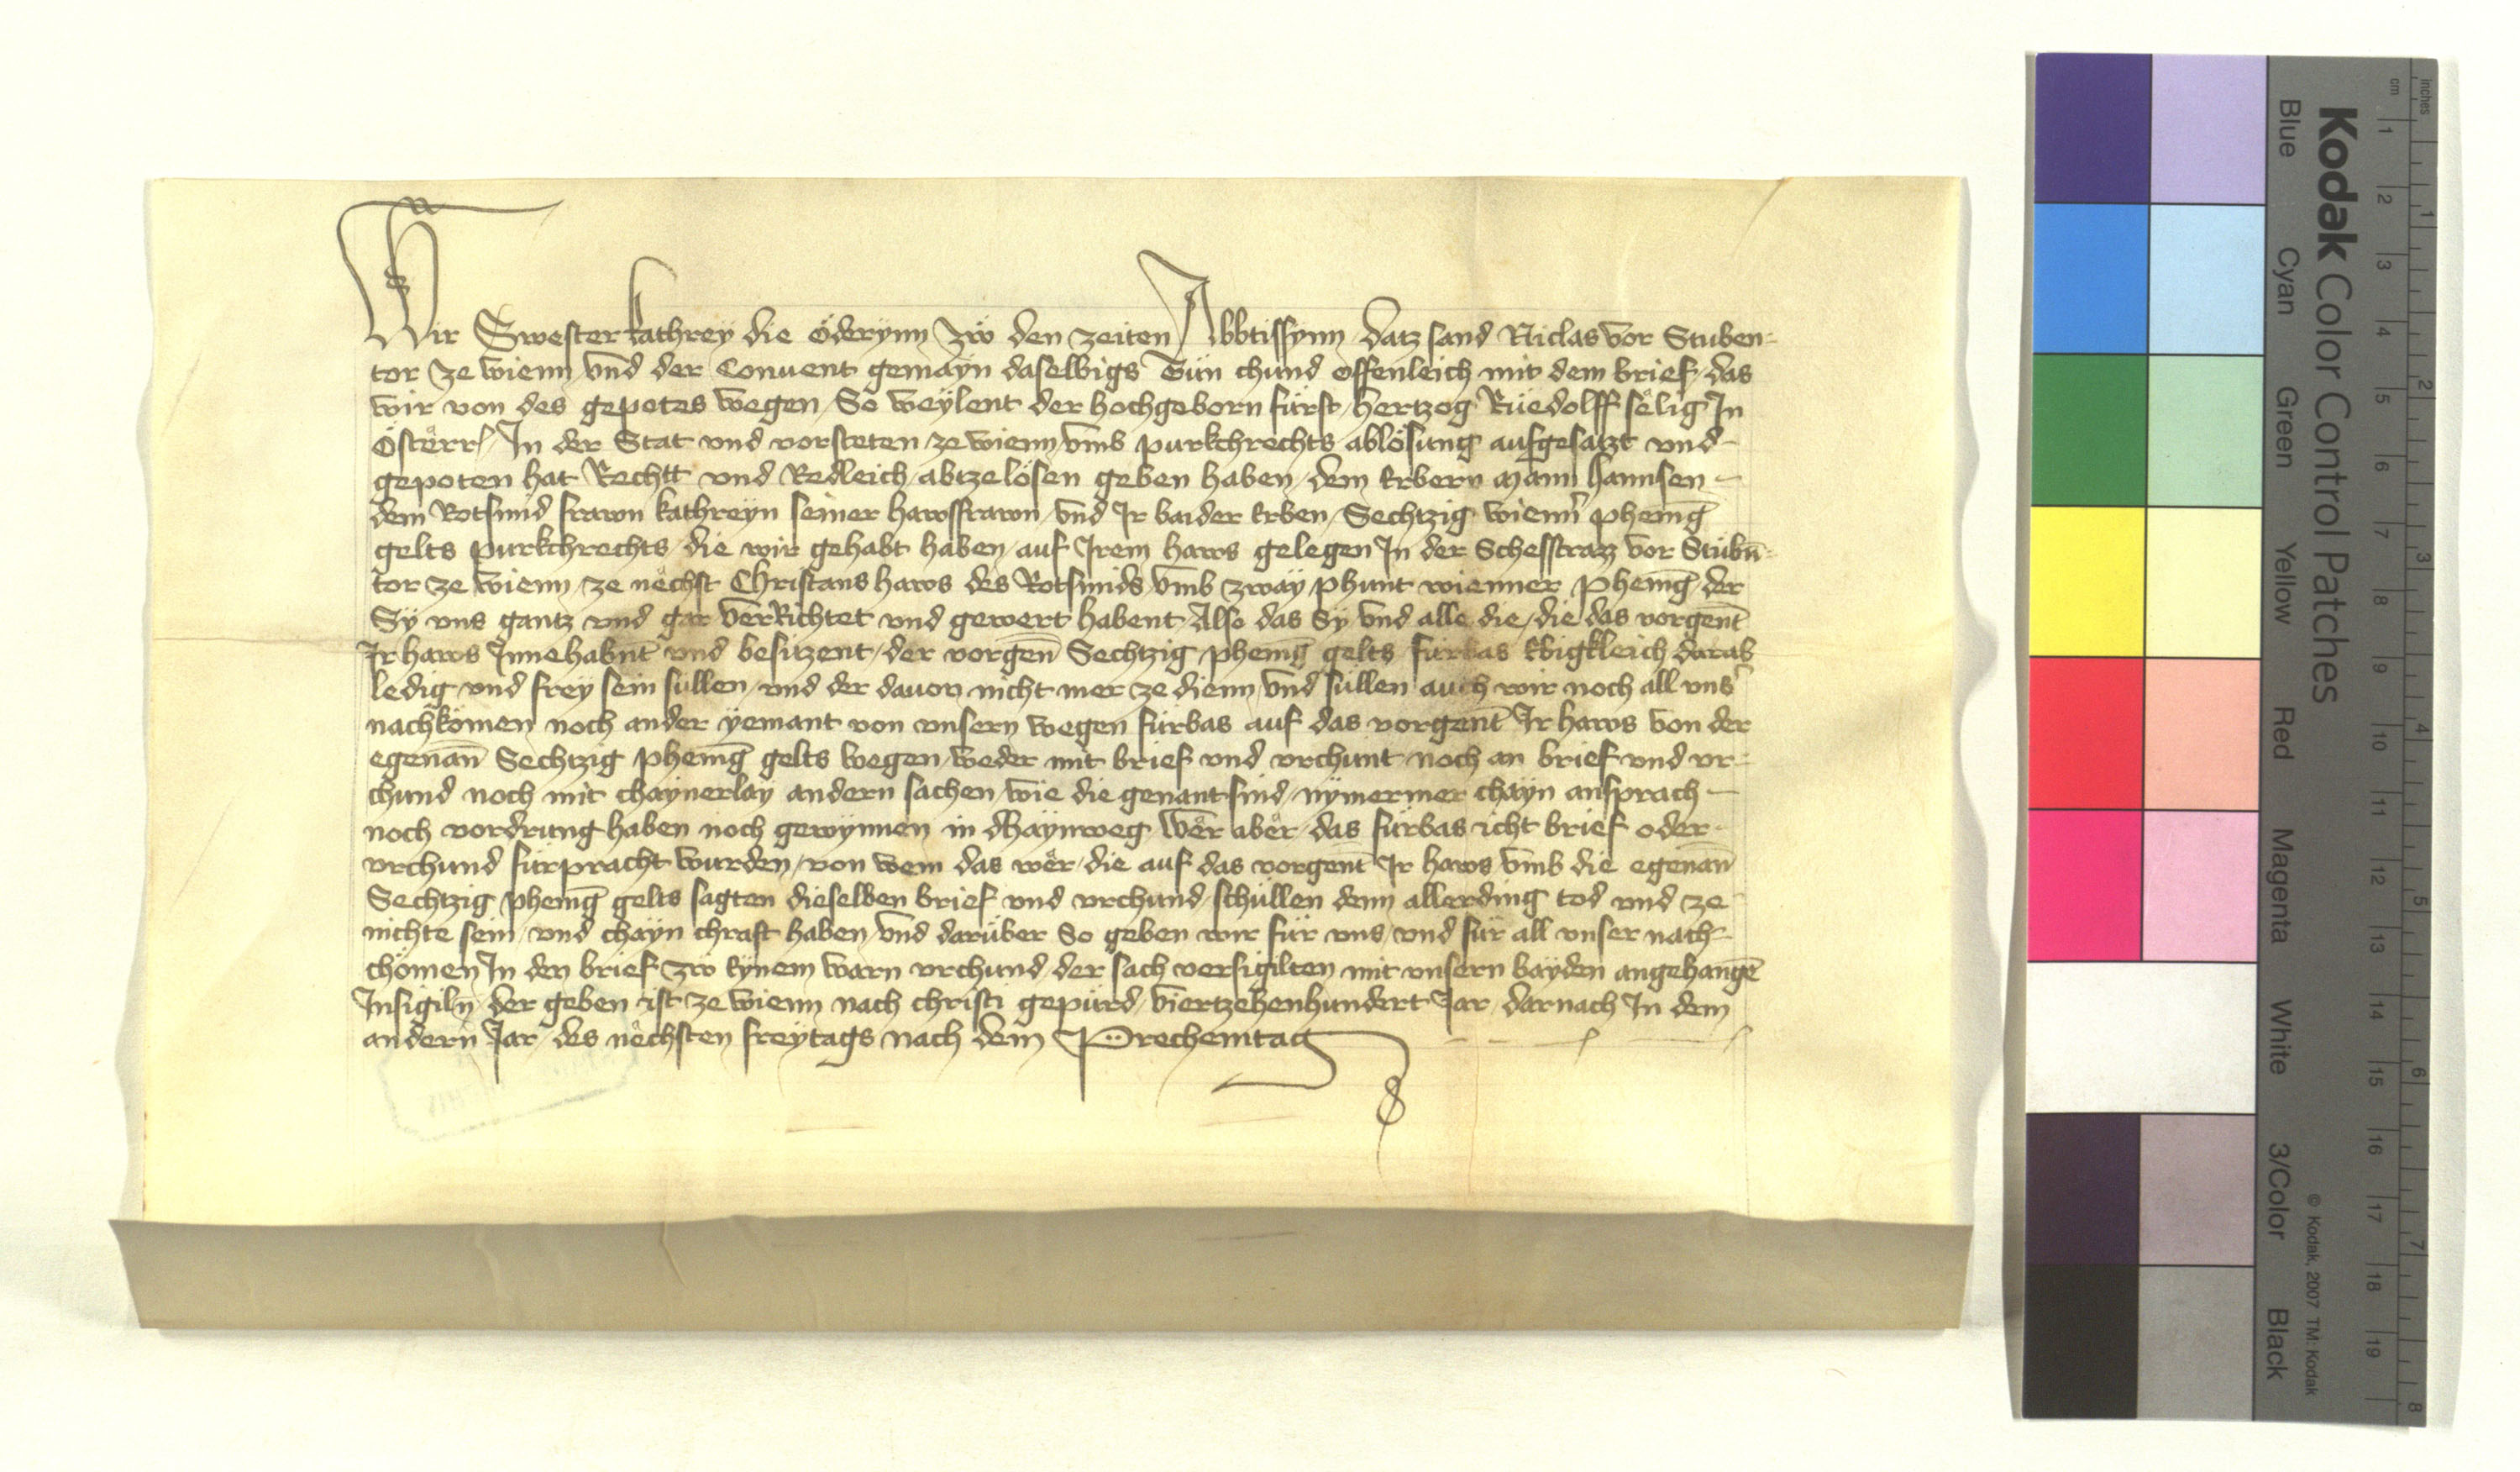 Wir Swester kathrey die Öderynn zw den zeiten Abbtissynn datz sand Niclas vor Stuben-
tor ze wienn vnd der Conuent gemayn daselbigs Tün chund offenleich mit dem brief das
wir von des gepotes wegen So weylent der hochgeborn fürst Hertzog Rüedolff sëlig In
Österr In der Stat vnd vorsteten ze wienn vmb purkchrechts ablösung aufgesatzt vnd
gepoten hat Rechtt vnd Redleich abtzelösen geben haben dem Erbern Mann hannsen
dem Rotsmid frawn kathreyn seiner hawsfrawn vnd Ir baider Erben Sechtzig wienn phenīg
gelts purkchrechts die wir gehabt haben auf Irem haws gelegen In der Schefstrazz vor Stubn̄-
tor ze wienn ze nëchst Christans haws des Rotsmids vmb zway phunt wienner phenīg der
Sy vns gantz vnd gar verRichtet vnd gewert habent Also das Sy vnd alle die die das vorgent̄
Ir haws Innehabnt vnd besitzent der vorgen̄ Sechtzig phenīg gelts fürbas Ebigkleich darab
ledig vnd frey sein süllen vnd der dauon nicht mer ze dienn vnd süllen auch wir noch all vns
nachkömen noch ander yemant von vnsern wegen fürbas auf das vorgent̄ Ir haws von der
egenan̄ Sechtzig phenīg gelts wegen weder mit brief vnd vrchunt noch an brief vnd vr-
chund noch mit chaynerlay andern sachen wie die genant sind nymermer chayn ansprach
noch vordrung haben noch gewynnen in dhaynweg Wër abër das fürbas icht brief oder
vrchund fürpracht wurden von wem das wër die auf das vorgent̄ Ir haws vmb die egenan̄
Sechtzig phenīg gelts sagten dieselben brief vnd vrchund schüllen denn allerding tod vnd ze
nichte sein vnd chayn chraft haben vnd darüber So geben wir für vns vnd für all vnser nach-
chömen In den brief zw Eynem warn vrchund der sach versigilten mit vnsern bayden angehangē
Insigiln der geben ist ze wienn nach christi gepürd viertzehenhundert Jar darnach In dem
andern Jar des nëchsten freytags nach dem Prechemtag
Kodak Color Control Patches
Blue Cyan Green Yellow Red Magenta White 3/Color Black
inches 1 2 3 4 5 6 7 8
cm 1 2 3 4 5 6 7 8 9 10 11 12 13 14 15 16 17 18 19
© Kodak, 2007 TM: Kodak